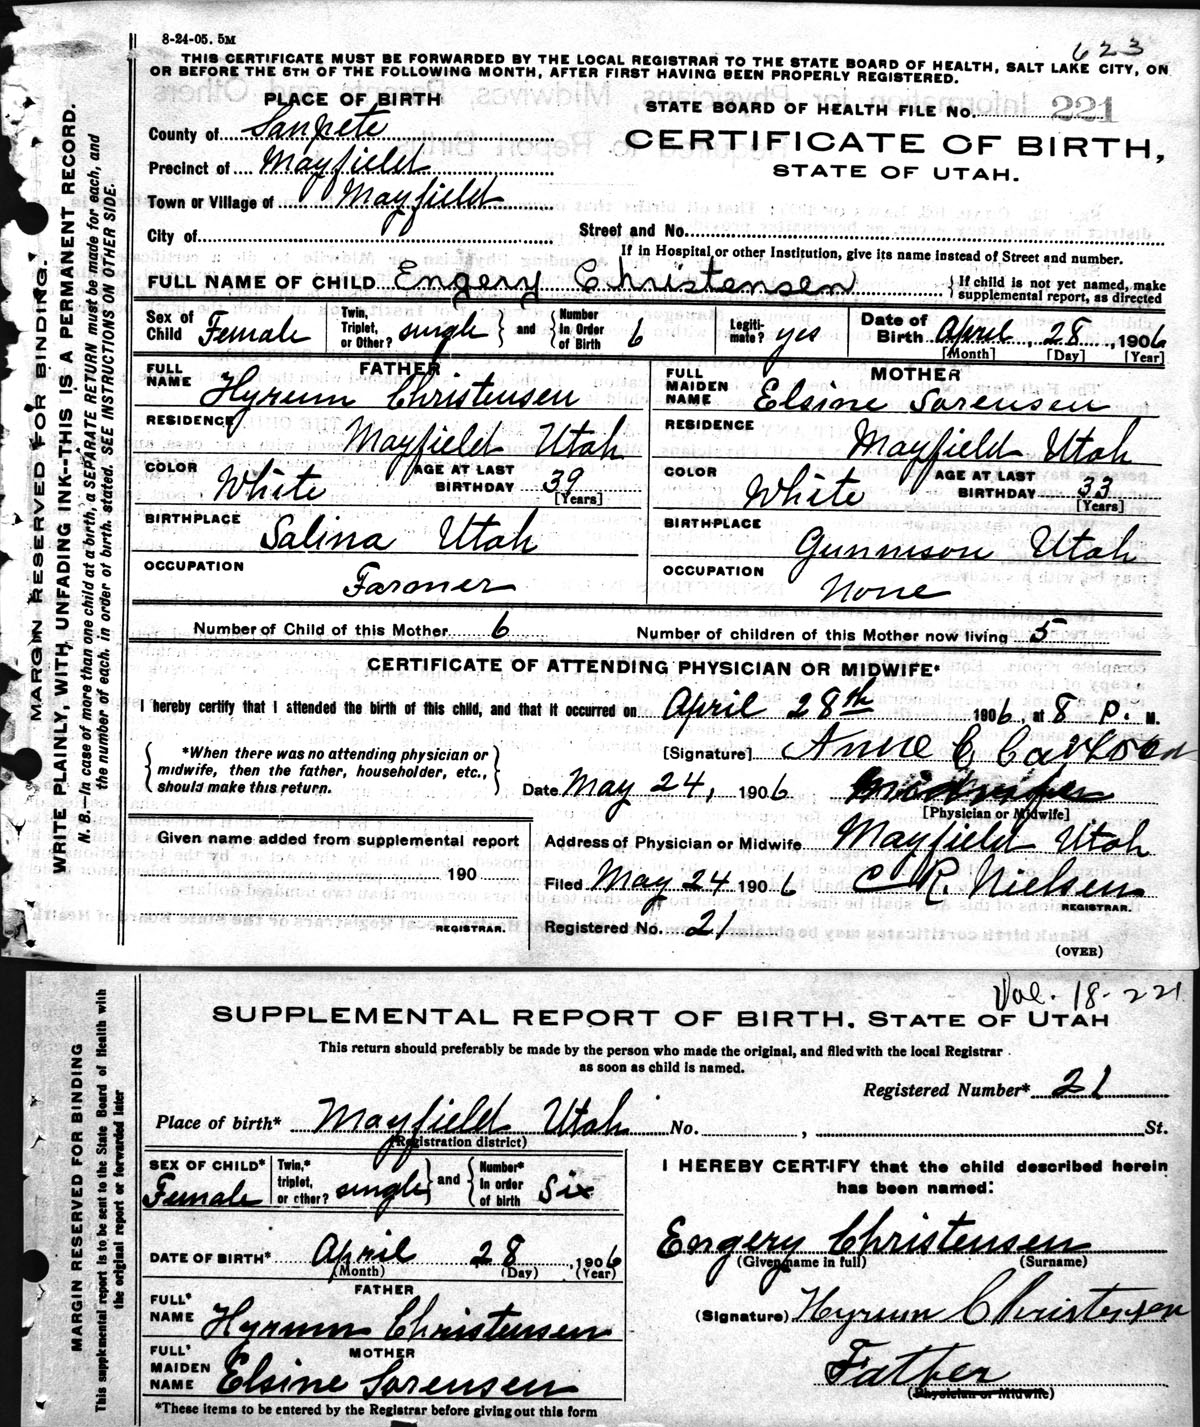 8-24-05. 5M
623
THIS CERTIFICATE MUST BE FORWARDED BY THE LOCAL REGISTRAR TO THE STATE BOARD OF HEALTH, SALT LAKE CITY, ON
OR BEFORE THE 5TH OF THE FOLLOWING MONTH, AFTER FIRST HAVING BEEN PROPERLY REGISTERED.
MARGIN RESERVED FOR BINDING.
WRITE PLAINLY, WITH UNFADING INK--THIS IS A PERMANENT RECORD.
N. B.--In case of more than one child at a birth, a SEPARATE RETURN must be made for each, and
the number of each, in order of birth, stated. SEE INSTRUCTIONS ON OTHER SIDE.
PLACE OF BIRTH
STATE BOARD OF HEALTH FILE No. 221
County of Sanpete
CERTIFICATE OF BIRTH,
Precinct of Mayfield
STATE OF UTAH.
Town or Village of Mayfield
City of
Street and No.
If in Hospital or other Institution, give its name instead of Street and number.
FULL NAME OF CHILD Engery Christensen { If child is not yet named, make
supplemental report, as directed
Sex of Child Female
Twin, Triplet, or Other? single } and { Number in Order of Birth 6
Legitimate? yes
Date of Birth April 28, 1906
[Month] [Day] [Year]
FATHER
FULL NAME Hyrum Christensen
RESIDENCE Mayfield Utah
COLOR White AGE AT LAST BIRTHDAY 39
[Years]
BIRTHPLACE Salina Utah
OCCUPATION Farmer
MOTHER
FULL MAIDEN NAME Elsine Sorensen
RESIDENCE Mayfield Utah
COLOR White AGE AT LAST BIRTHDAY 33
[Years]
BIRTHPLACE Gunnison Utah
OCCUPATION None
Number of Child of this Mother 6 Number of children of this Mother now living 5
CERTIFICATE OF ATTENDING PHYSICIAN OR MIDWIFE*
I hereby certify that I attended the birth of this child, and that it occurred on April 28th 1906, at 8 P. M.
{ *When there was no attending physician or
midwife, then the father, householder, etc.,
should make this return. }
[Signature] C Carlson
Date May 24, 1906 Midwife
[Physician or Midwife]
Given name added from supplemental report
190
REGISTRAR.
Address of Physician or Midwife Mayfield Utah
Filed May 24 1906 C R. Nielsen
REGISTRAR.
Registered No. 21
(OVER)
Vol. 18-221
SUPPLEMENTAL REPORT OF BIRTH, STATE OF UTAH
This return should preferably be made by the person who made the original, and filed with the local Registrar
as soon as child is named.
MARGIN RESERVED FOR BINDING
This supplemental report is to be sent to the State Board of Health with
the original report or forwarded later
Registered Number* 21
Place of birth* Mayfield Utah No. , St.
(Registration district)
SEX OF CHILD* Female
Twin,* triplet, or other? single } and { Number* in order of birth six
DATE OF BIRTH* April 28, 1906
(Month) (Day) (Year)
FATHER
FULL* NAME Hyrum Christensen
MOTHER
FULL* MAIDEN NAME Elsine Sorensen
*These items to be entered by the Registrar before giving out this form
I HEREBY CERTIFY that the child described herein
has been named:
Engery Christensen
(Given name in full) (Surname)
(Signature) Hyrum Christensen
Father
(Physician or Midwife)